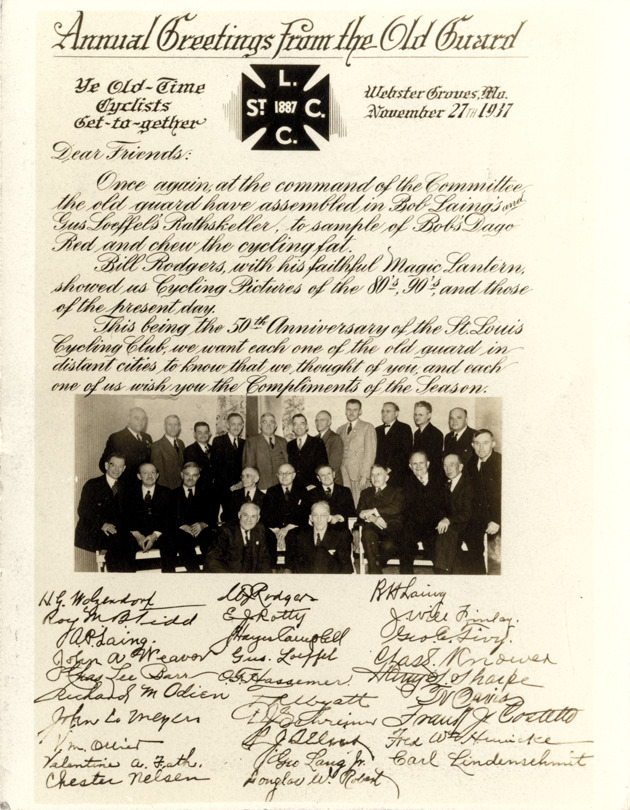 Annual Greetings from the Old Guard
Ye Old-Time
Cyclists
Get-to-gether
L.
ST 1887 C.
C.
Webster Groves, Mo.
November 27TH 1937
Dear Friends:
Once again, at the command of the Committee,
the old guard have assembled in Bob Laing's and
Gus Loeffel's Rathskeller, to sample of Bob's Dago
Red and chew the cycling fat.
Bill Rodgers, with his faithful Magic Lantern,
showed us Cycling Pictures of the 80's, 90's, and those
of the present day.
This being the 50th Anniversary of the St. Louis
Cycling Club, we want each one of the old guard in
distant cities to know that we thought of you, and each
one of us wish you the Compliments of the Season.
H.G. Wolzendorf
Roy M
J.A.R. Laing.
John A Weaver
Chas Lee Barr
Richard M Odien
John Lo Meyers
Valentine A. Fath.
Chester Nelsen
W.J. Rodgers
E.J. Rotty
J Hayes Campbell
Gus. Loeffel
O.G. Hassemer
Wyatt
Schreiner
Geo Lang Jr.
Douglas W. Robert
R H Laing
J. Will Finlay.
Geo. E. Tivy.
Chas. S. Knower
Sharpe
Davis
Frank J. Costello
Fred Wm
Carl Lindenschmit